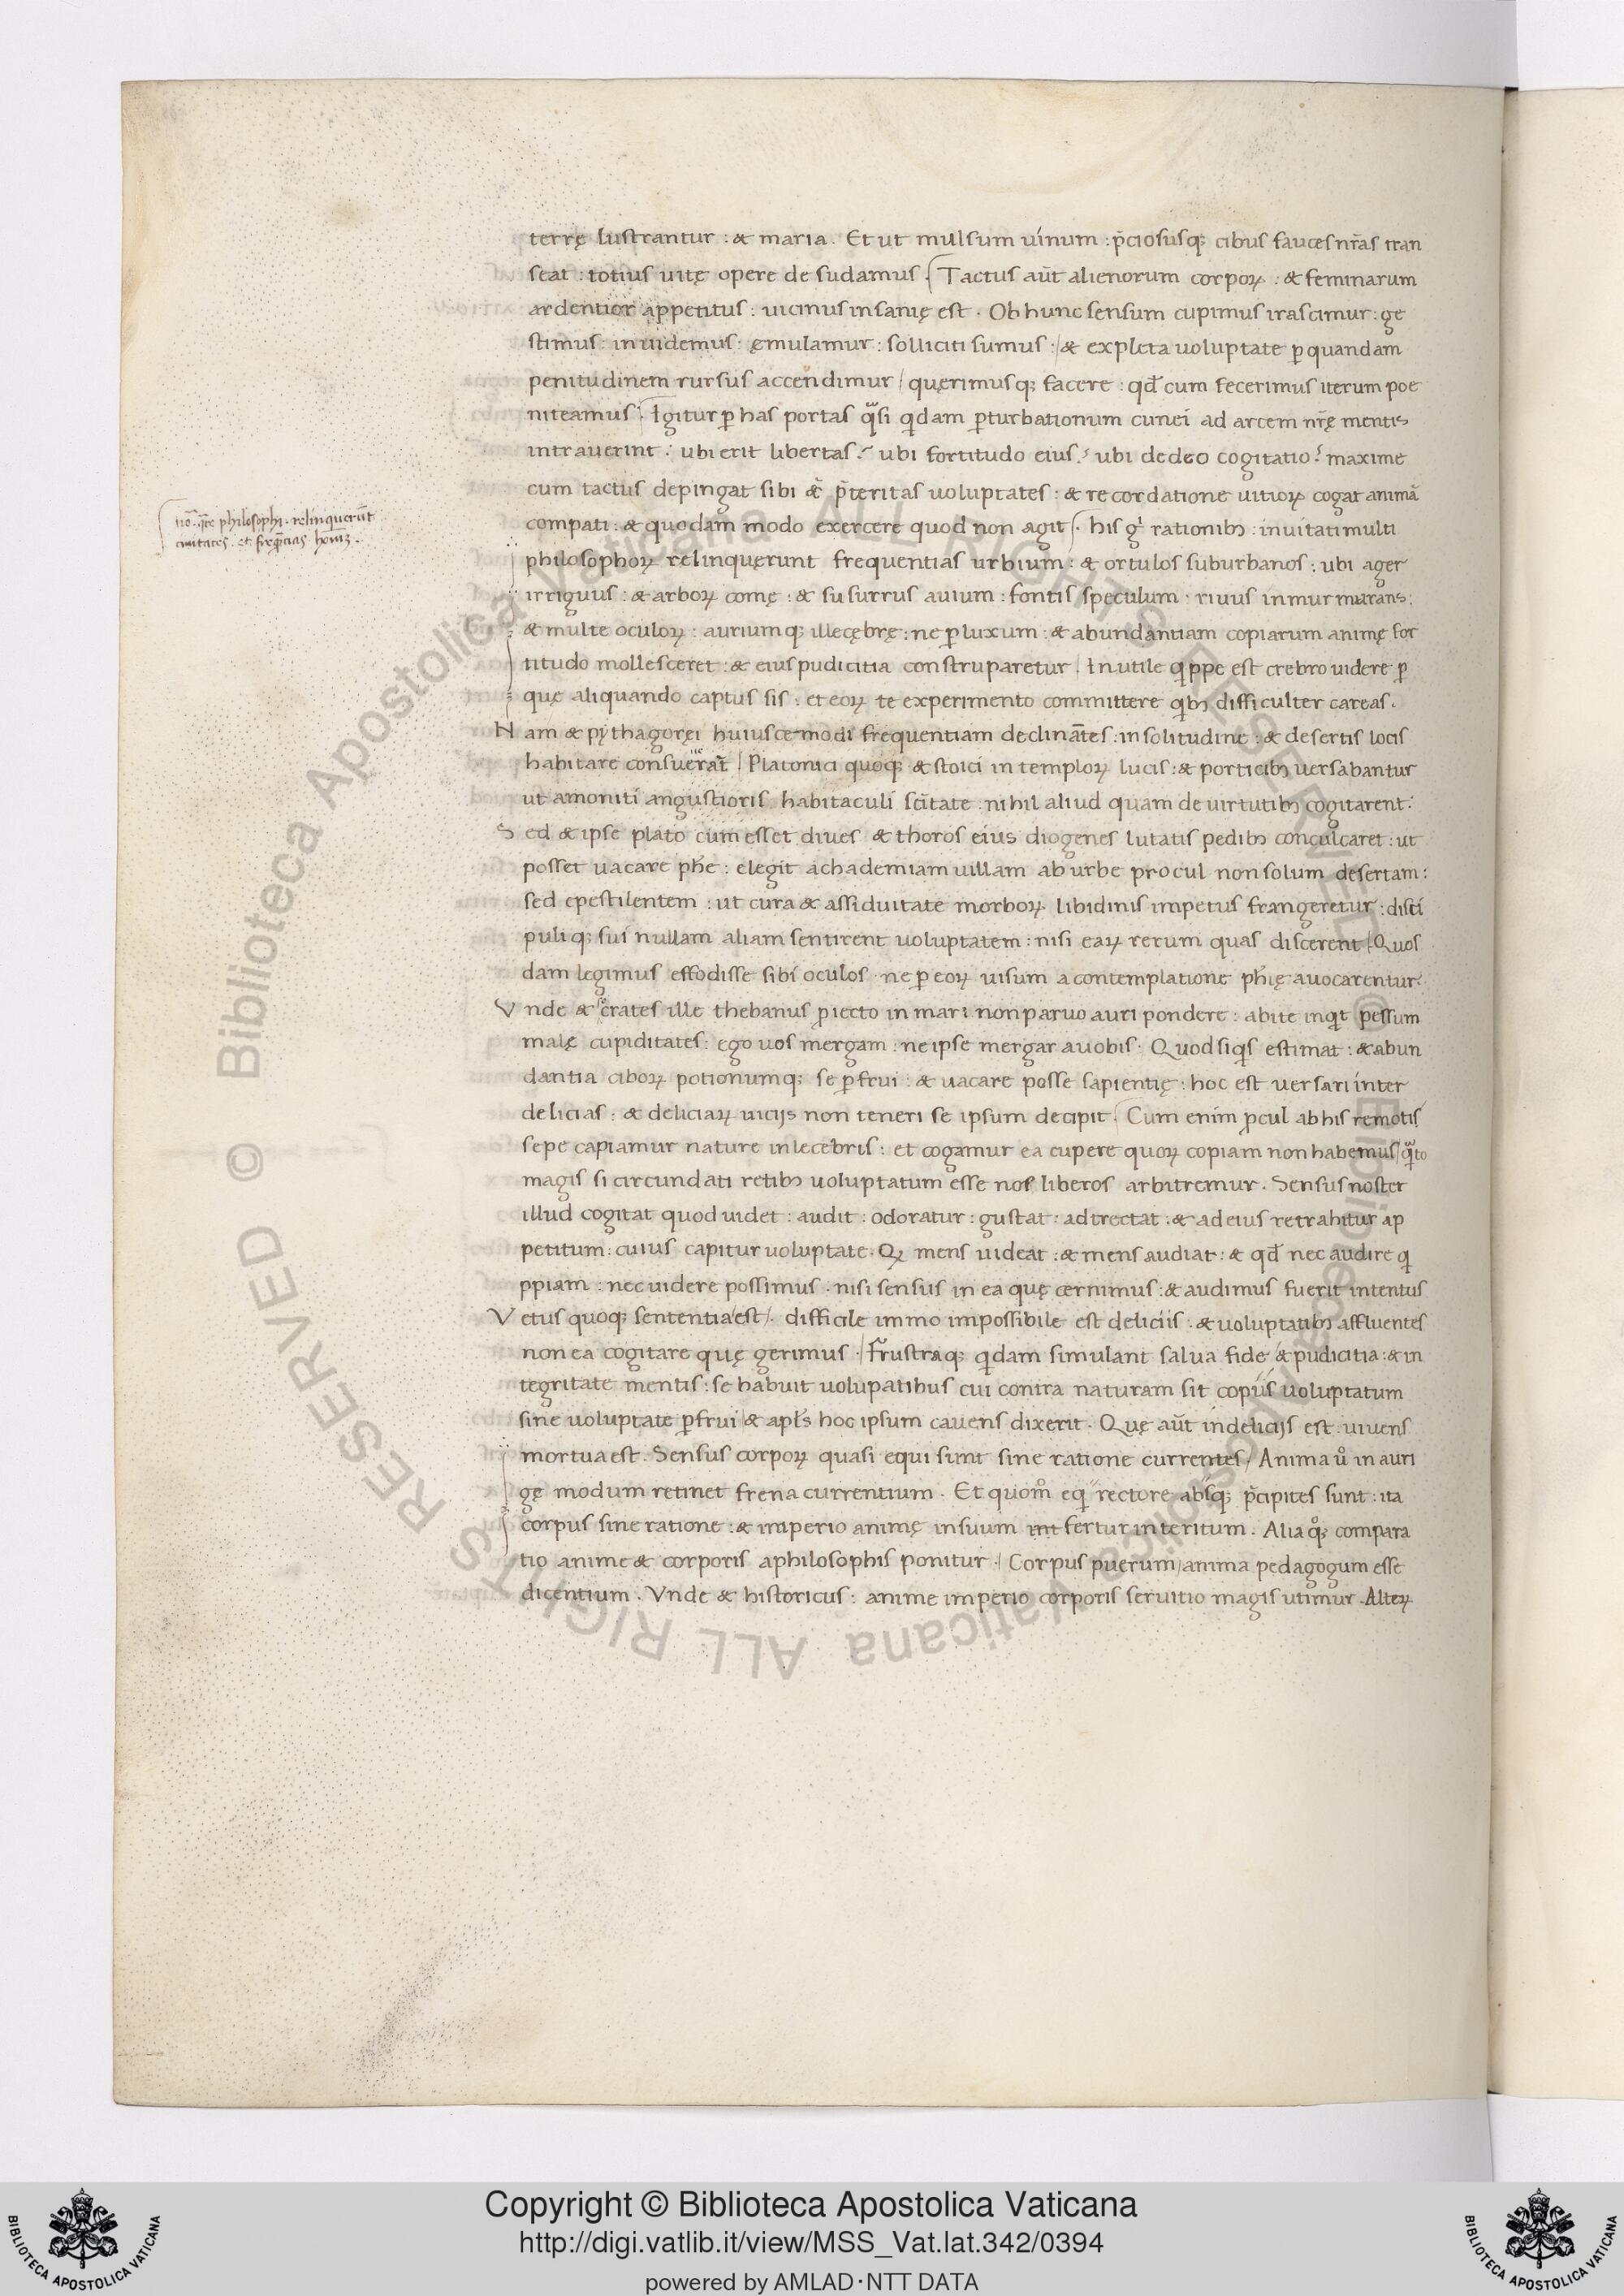 terrę lustrantur : & maria . Et ut mulsum uinum : p̄ciosusq; cibus fauces nr̄as tran
seat : totius uitę opere de sudamus . Tactus aūt alienorum corpoꝝ : & feminarum
ardentior appetitus : uicinus insanię est . Ob hunc sensum cupimus irascimur : ge
stimus : inuidemus : ęmulamur : solliciti sumus : / & expleta uoluptate ꝑ quandam
penitudinem rursus accendimur / quęrimusq; facere : qđ cum fecerimus iterum poe
niteamus . Igitur ꝑ has portas qͣsi qͥdam ꝑturbationum cunei ad arcem nr̄ę mentis
intrauerint : ubi erit libertas ? ubi fortitudo eius ? ubi dedeo cogitatio ? maxime
cum tactus depingat sibi & p̄teritas uoluptates : & recordatione uitioꝝ cogat animā
compati : & quodam modo exercere quod non agit . his gͥ rationibꝫ : inuitati multi
philosophoꝝ relinquęrunt frequentias urbium : & ortulos suburbanos : ubi ager
irriguus : & arboꝝ comę : & susurrus auium : fontis speculum . riuus inmurmurans :
& multe oculoꝝ : auriumq; illecębrę : ne ꝑ luxum : & abundantiam copiarum animę for
titudo mollesceret : & eius pudicitia construparetur . Inutile qͥppe est crebro uidere ꝑ
quę aliquando captus sis : et eoꝝ te experimento committere qͥbꝫ difficulter careas .
Nam & pythagoręi huiuscemodi frequentiam declinātes : in solitudine : & desertis locis
habitare consuerāt / Platonici quoq; & stoici in temploꝝ lucis : & porticibꝫ uersabantur
ut amoniti angustioris habitaculi sc̄itate : nihil aliud quam de uirtutibꝫ cogitarent :
Sed & ipse plato cum esset diues & thoros eius diogenes lutatis pedibꝫ conculcaret : ut
posset uacare ph̄e : elegit achademiam uillam ab urbe procul non solum desertam :
sed epestilentem : ut cura & assiduitate morboꝝ libidinis impetus frangeretur : disci
puliq; sui nullam aliam sentirent uoluptatem : nisi eaꝝ rerum quas discerent / Quos
dam legimus effodisse sibi oculos . ne ꝑ eoꝝ uisum a contemplatione ph̄ię auocarentur .
Vnde & crates ille thebanus ꝓiecto in mari non paruo auri pondere : abite inqͥt pessum
malę cupiditates : ego uos mergam : ne ipse mergar auobis . Quod siqͥs estimat : & abun
dantia ciboꝝ potionumq; se ꝑfrui : & uacare posse sapientię : hoc est uersari inter
delicias : & deliciaꝝ uicijs non teneri se ipsum decipit . Cum enim ꝓcul ab his remotis
sepe capiamur nature inlecebris : et cogamur ea cupere quoꝝ copiam non habemus / qͣto
magis si circundati retibꝫ uoluptatum esse nos liberos arbitremur . Sensus noster
illud cogitat quod uidet : audit : odoratur : gustat : adtrectat : & ad eius retrahitur ap
petitum : cuius capitur uoluptate . Qꝫ mens uideat : & mens audiat : & qđ nec audire qͥ
ppiam : nec uidere possimus . nisi sensus in ea quę cernimus : & audimus fuerit intentus
Vetus quoq; sententia / est / . difficile immo impossibile est deliciis . & uoluptatibꝫ affluentes
non ea cogitare quę gerimus . / frustraq; qͥdam simulant salua fide / & pudicitia : & in
tegritate mentis : se habuit uolupatibus cui contra naturam sit copiis uoluptatum
sine uoluptate ꝑfrui / & apl̄s hoc ipsum cauens dixerit . Quę aūt indelicijs est . uiuens
mortua est . Sensus corpoꝝ quasi equi sunt sine ratione currentes / Anima uͦ in auri
gę modum retinet frena currentium . Et quom̊ eqͥ rectore absq; p̄cipites sunt : ita
corpus sine ratione : & imperio animę insuum int fertur interitum . Alia qͦq; compara
tio anime & corporis aphilosophis ponitur . / Corpus puerum / anima pedagogum esse
dicentium . Vnde & historicus : anime imperio corporis seruitio magis utimur . Alteꝝ
no͂ . qͣre philosophi . relinquerūt
ciuitates . et freqͣ̄tias hoīuꝫ .
Copyright © Biblioteca Apostolica Vaticana
http://digi.vatlib.it/view/MSS_Vat.lat.342/0394
powered by AMLAD·NTT DATA
BIBLIOTECA APOSTOLICA VATICANA
BIBLIOTECA APOSTOLICA VATICANA
Biblioteca Apostolica Vaticana ALL RIGHTS RESERVED ©
Biblioteca Apostolica Vaticana ALL RIGHTS RESERVED ©